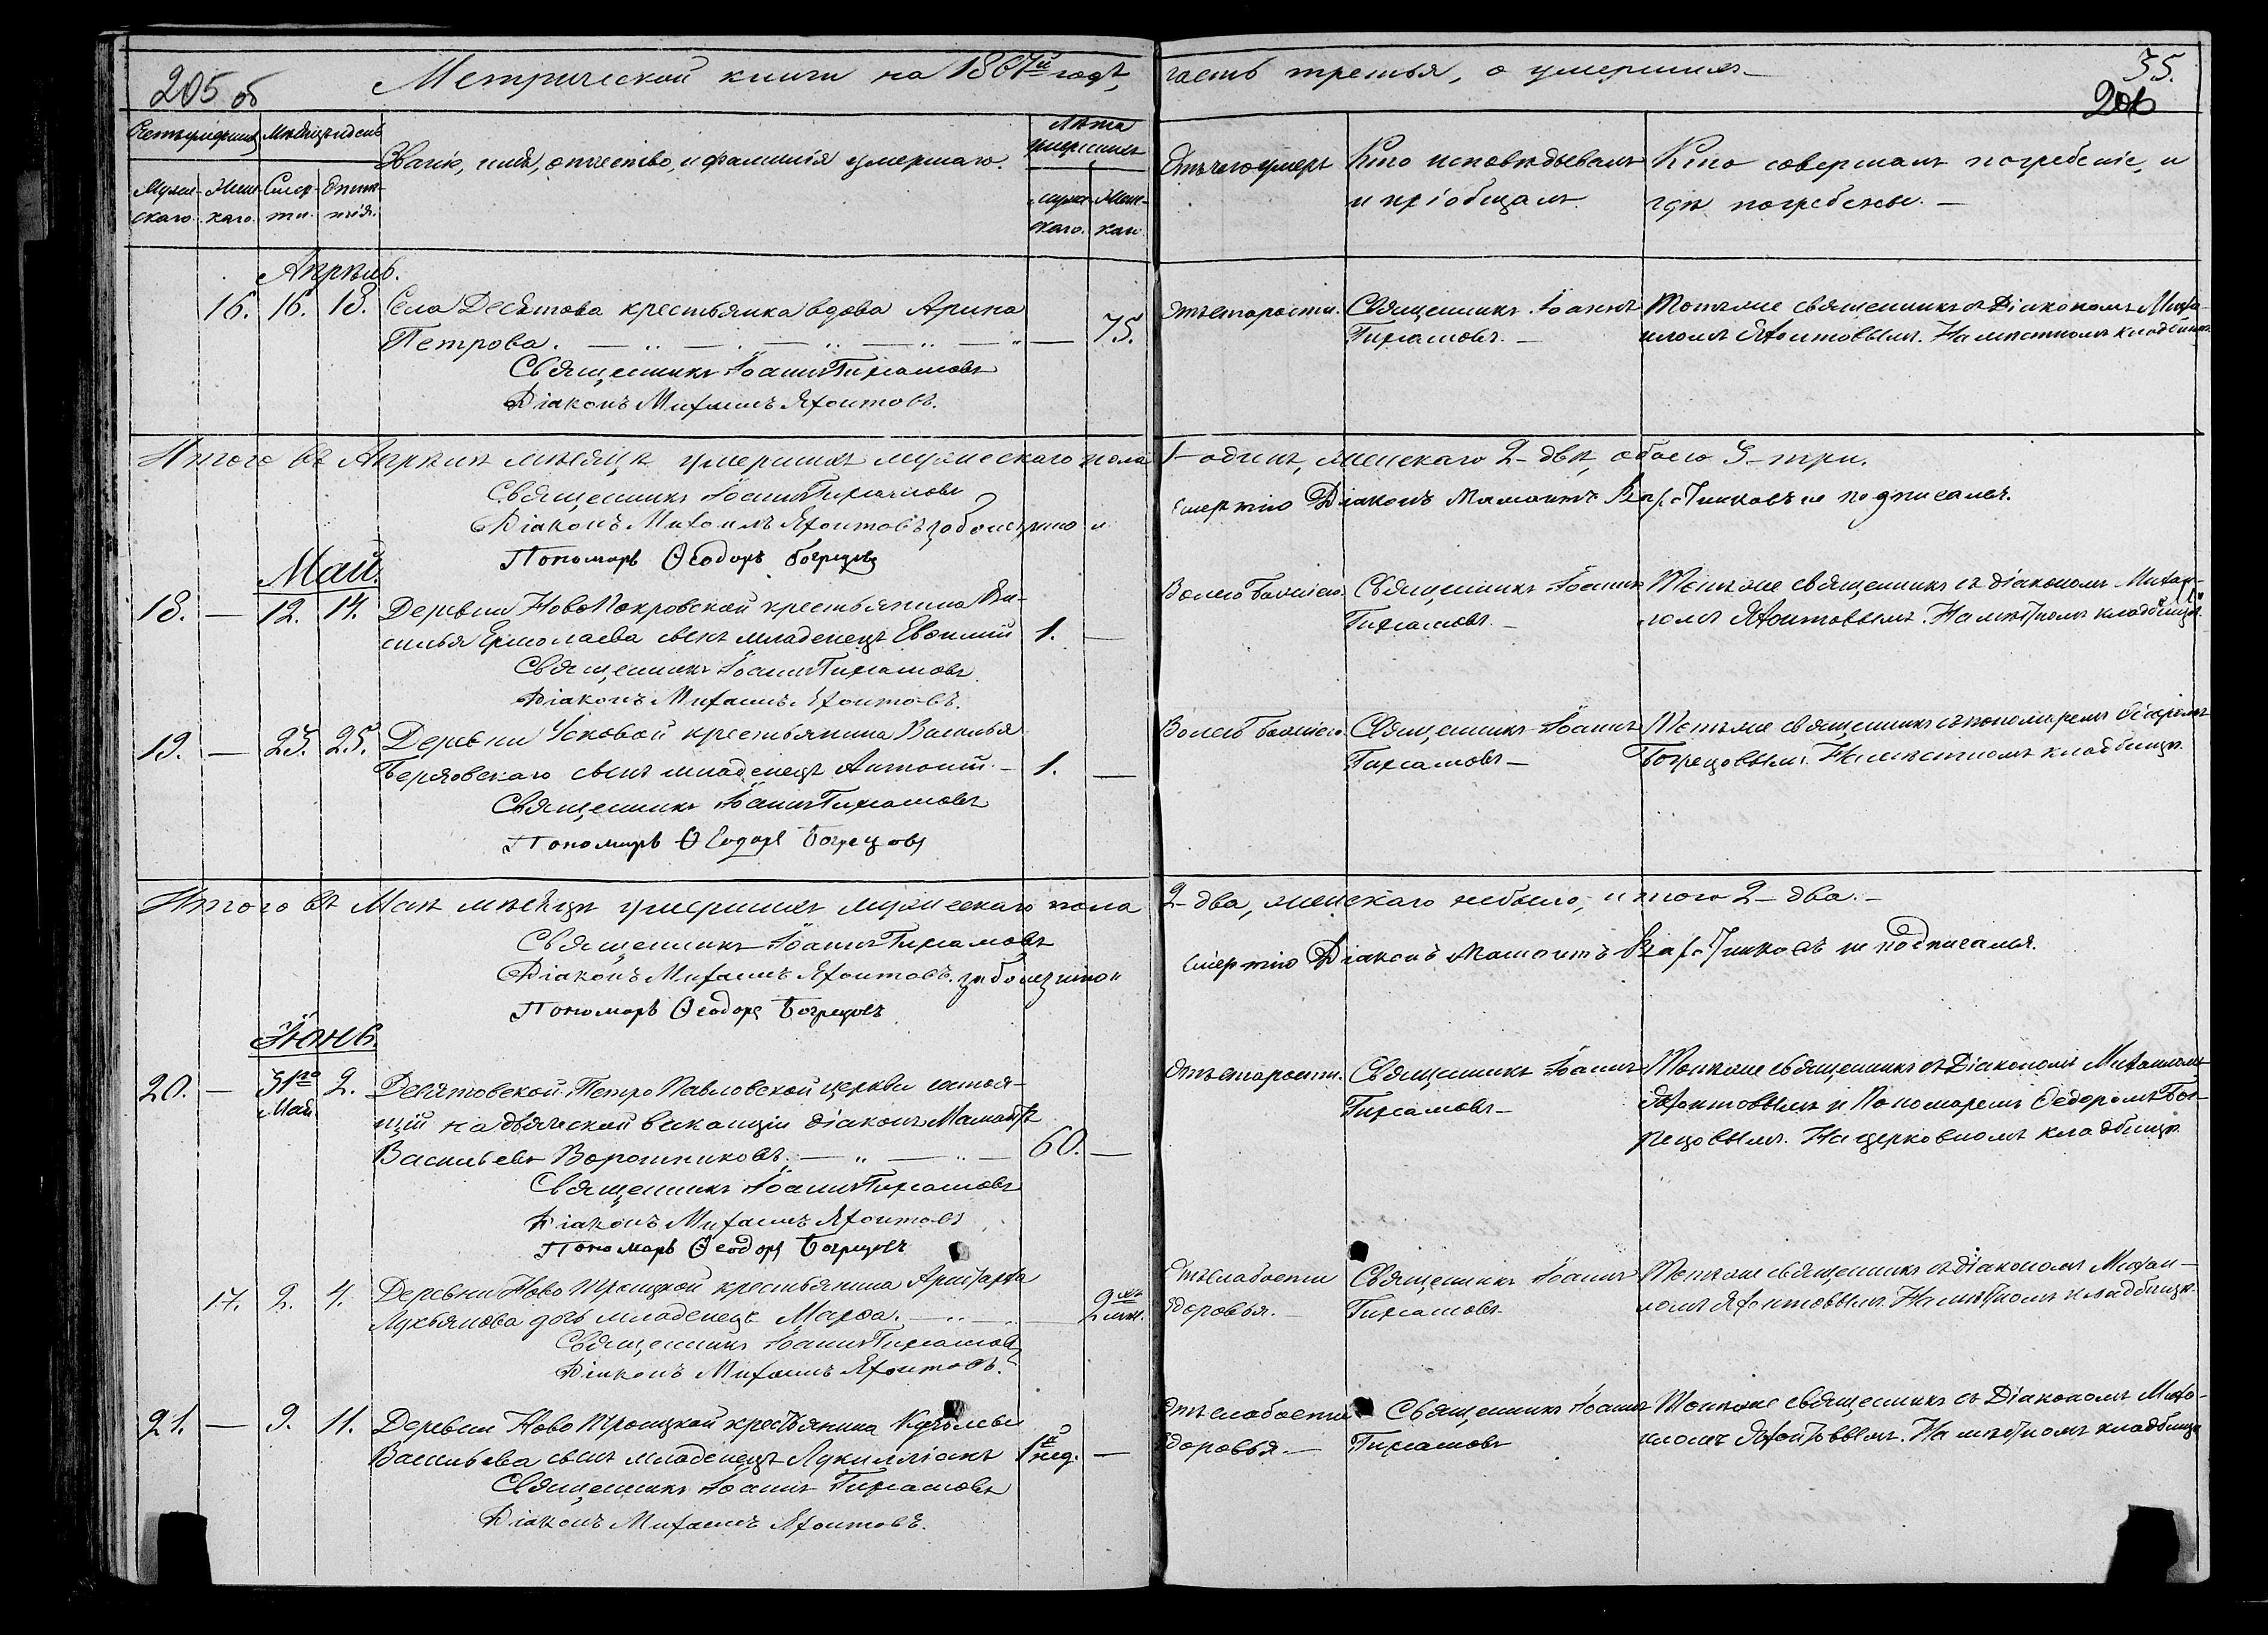 205 об
Метрической книги на 1867й годъ,
часть третья, о умершихъ
35.
206
Счетъ умершихъ
Мѣсяцъ и день
Званіе, имя, отчество, и фамилія умершаго.
Лѣта умершихъ
Отъ чего умеръ
Кто исповѣдывалъ
и пріобщалъ
Кто совершалъ погребеніе, и
гдѣ погребены.
Муже-
скаго.
Жен-
скаго.
Смер-
ти.
Погре-
бенія.
муже-
скаго.
Жен-
скаго
Апрѣль.
16. 16. 18. Села Десятова крестьянка вдова Арина
Петрова. — 75.
Священникъ Іоаннъ
Діаконъ Михаилъ Яхонтовъ.
Отъ старости.
Священникъ Іоаннъ
Тотъ же священникъ съ Діакономъ Миха-
иломъ Яхонтовымъ. На мѣстномъ кладбищѣ
Итого въ Апрѣлѣ мѣсяцѣ умершихъ мужескаго пола
1 - одинъ, женскаго 2 - двѣ, обоего 3 - три.
Священникъ Іоаннъ
Діаконъ Михаилъ Яхонтовъ, за болезнію и
смертію Діаконъ Мамонтъ не подписался.
Пономарь Ѳеодоръ Богрецовъ
Май.
18. — 12. 14. Деревни НовоПокровской крестьянина Ва-
силья Ермолаева сынъ младенецъ Евѳимій 1. —
Священникъ Іоаннъ
Діаконъ Михаилъ Яхонтовъ.
Священникъ Іоаннъ
Тотъ же священникъ съ діакономъ Михаи-
ломъ Яхонтовымъ. На мѣстномъ кладбищѣ.
19. — 23. 25. Деревни Усковой крестьянина Василья
сынъ младенецъ Антоній. — 1. —
Священникъ Іоаннъ
Пономарь Ѳеодоръ Богрецовъ
Священникъ Іоаннъ
Тотъ же священникъ съ пономаремъ Ѳеодоромъ
Богрецовымъ. На мѣстномъ кладбищѣ.
Итого въ Маѣ мѣсяцѣ умершихъ мужескаго пола
2 - два, женскаго не было, итого 2 - два. —
Священникъ Іоаннъ
Діаконъ Михаилъ Яхонтовъ. за болезнію и
смертію Діаконъ Мамонтъ не подписался.
Пономарь Ѳеодоръ Богрецовъ
Іюнь.
20. — 31го Май. 2. Десятовской Петро Павловской церкви состоя-
щій на дьяческой вакансіи діаконъ Мамонтъ
Васильевъ 60. —
Священникъ Іоаннъ
Діаконъ Михаилъ Яхонтовъ
Пономарь Ѳеодоръ Богрецовъ
Отъ старости.
Священникъ Іоаннъ
Тотъ же священникъ съ Діакономъ Михаиломъ
Яхонтовымъ и Пономаремъ Ѳедоромъ Бог-
рецовымъ. На церковномъ кладбищѣ.
17. 2. 4. Деревни Ново Троицкой крестьянина Аристарха
Лукьянова дочь младенецъ Марѳа. — 2
Священникъ Іоаннъ
Діаконъ Михаилъ Яхонтовъ.
Отъ слабости
здоровья.
Священникъ Іоаннъ
Тотъ же священникъ съ діакономъ Михаи-
ломъ Яхонтовымъ. На мѣстномъ кладбищѣ.
21. — 9. 11. Деревни Ново Троицкой крестьянина
Васильева сынъ младенецъ Лукилліанъ 1й нед. —
Священникъ Іоаннъ
Діаконъ Михаилъ Яхонтовъ.
Отъ слабости
здоровья. —
Священникъ Іоаннъ
Тотъ же священникъ съ Діакономъ Миха-
иломъ Яхонтовымъ. На мѣстномъ кладбищѣ